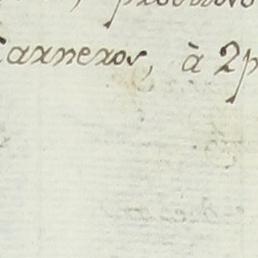 Carneros, à 2p